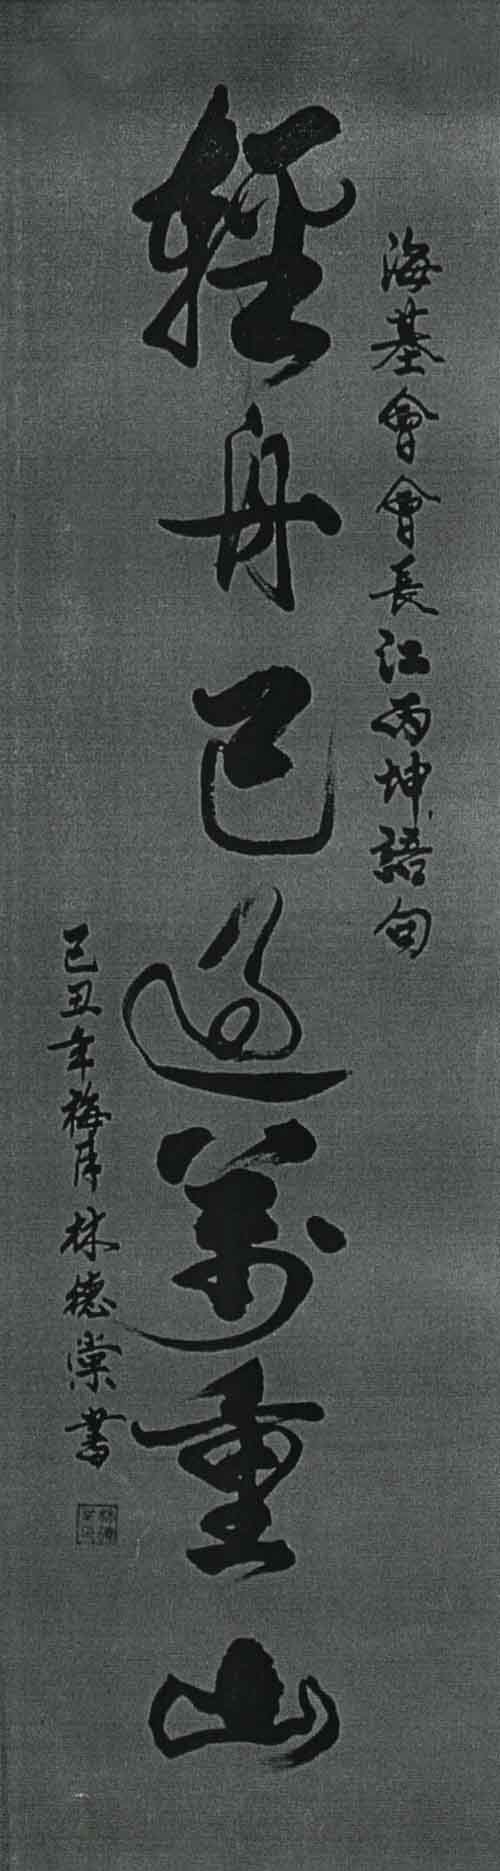 海基會會長江丙坤語句
輕舟已過萬重山
己丑年梅月林德棠書